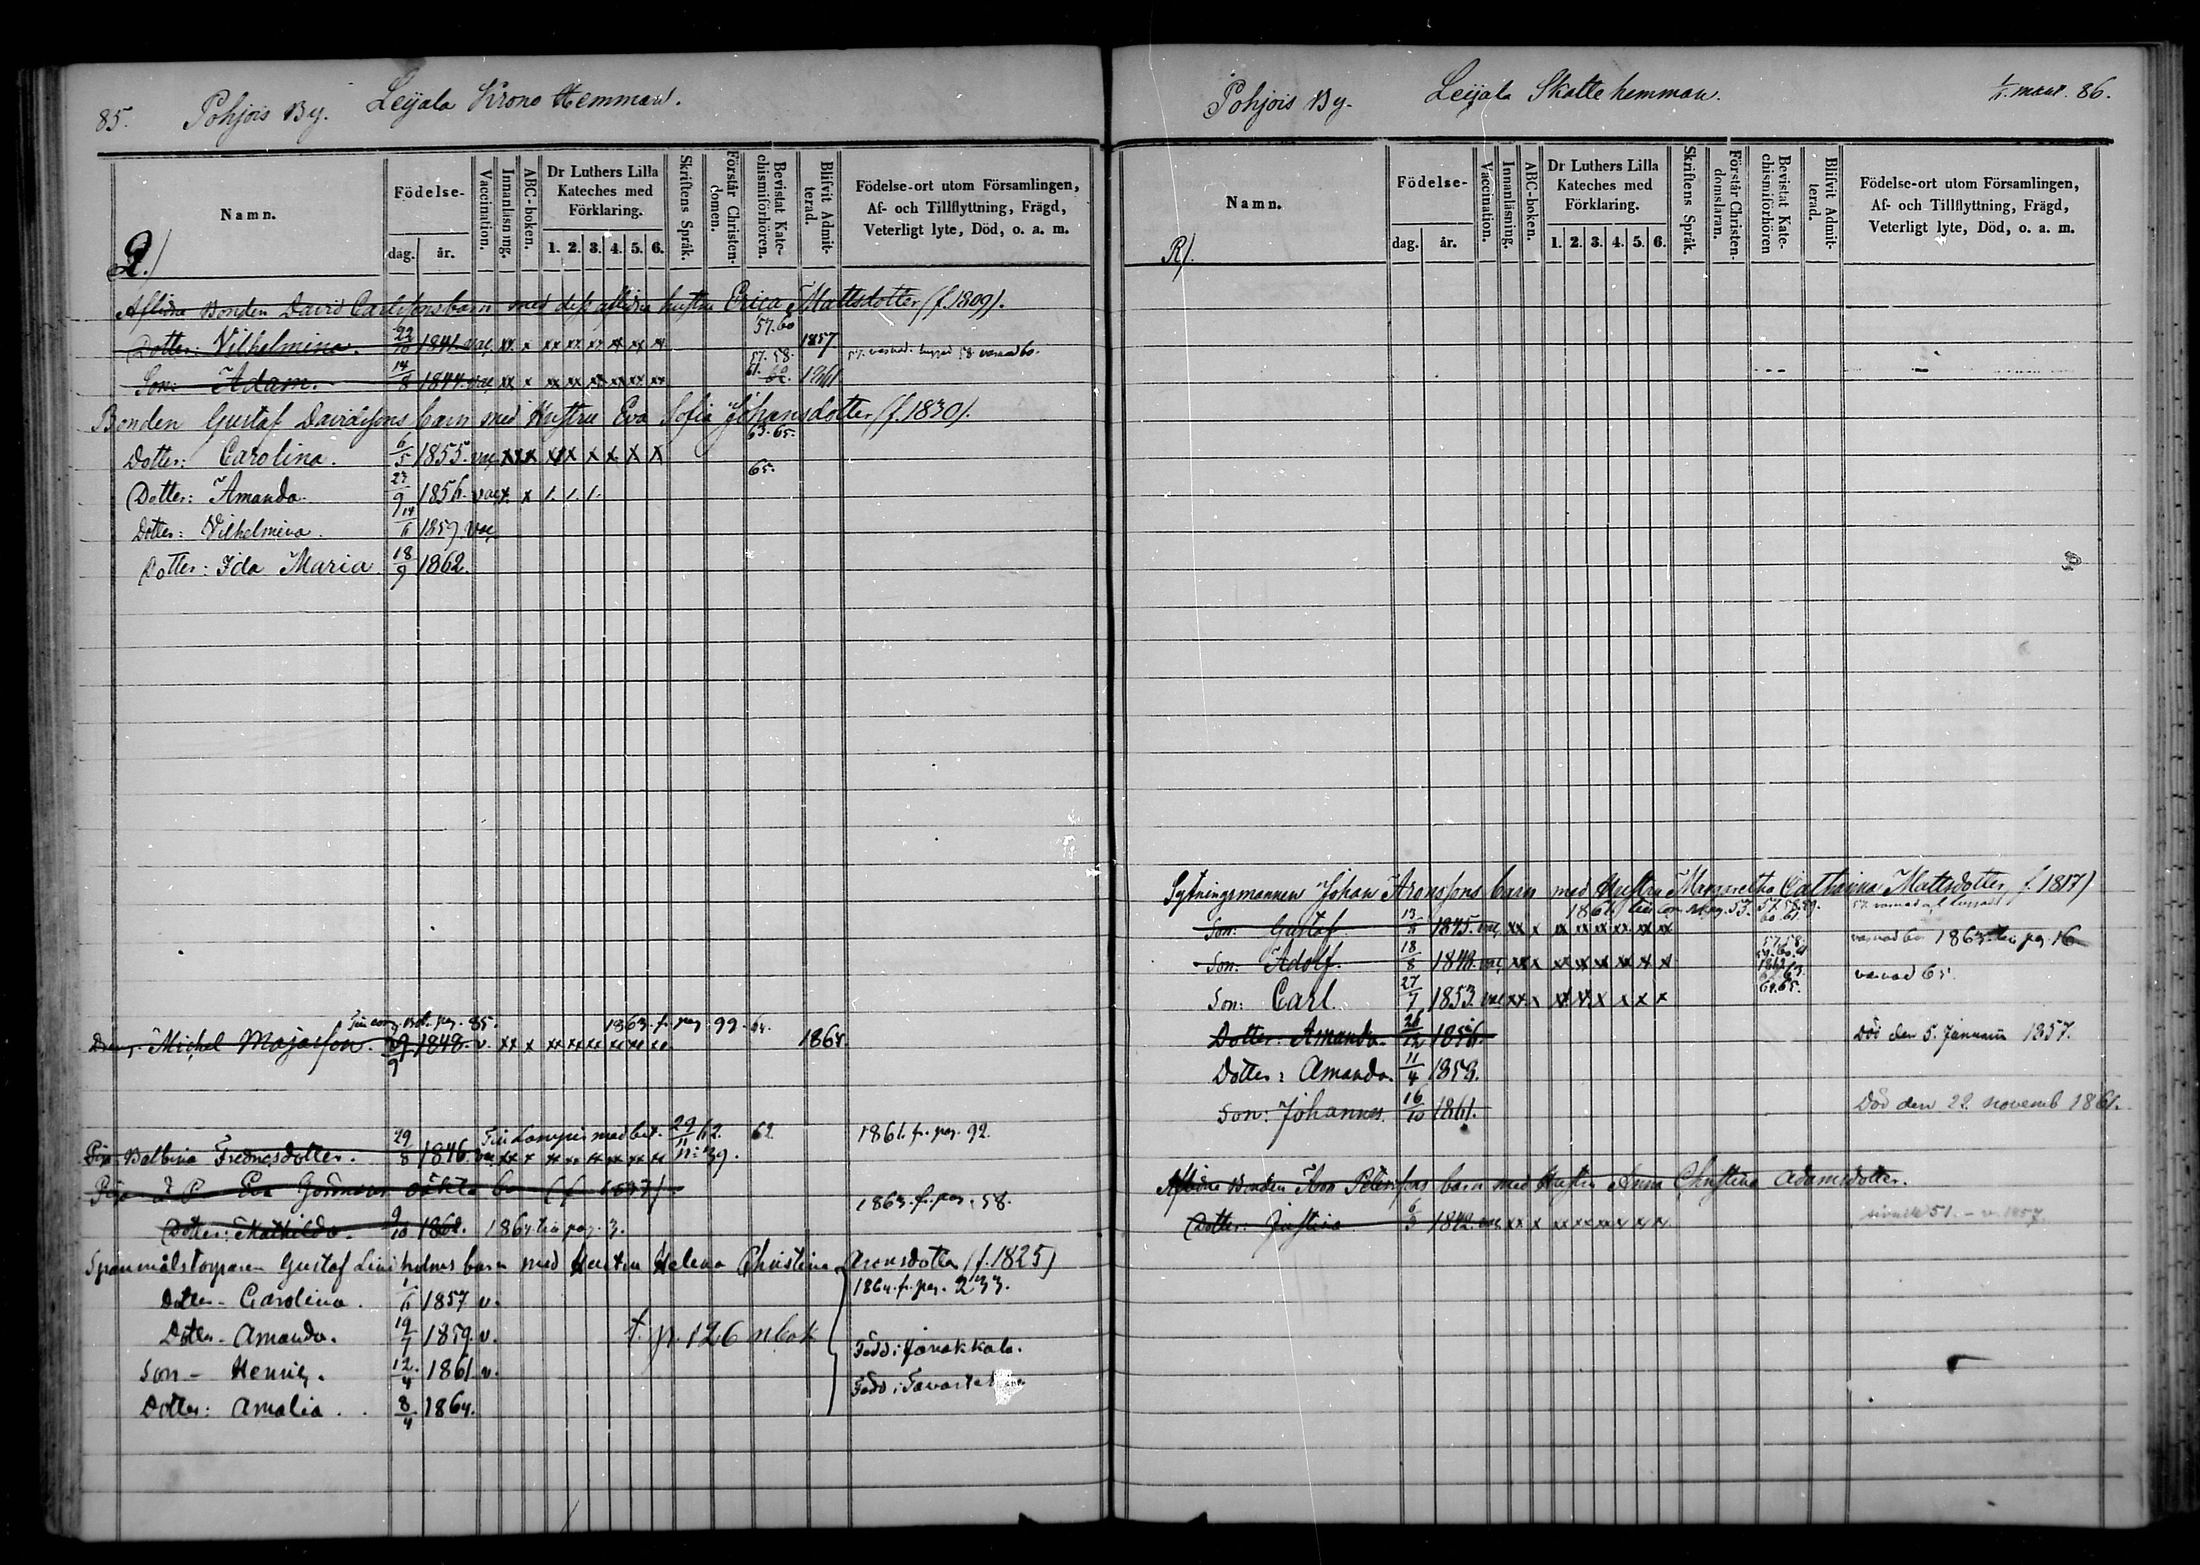 85. Pohjois By. Leijala Krono Hemman.
Namn. Födelse- dag. år. Vaccination. Innanläsning. ABC-boken. Dr Luthers Lilla Kateches med Förklaring. 1. 2. 3. 4. 5. 6. Skriftens Språk. Förstår Christendomen. Bevistat Katechismiförhören. Blifvit Admitterad. Födelse-ort utom Församlingen, Af- och Tillflyttning, Frägd, Veterligt lyte, Död, o. a. m.
Aflidne Bonden David Carlssons barn med dess aflidna hustru Erica Mattsdotter (f. 1809).
57. 60
Dotter: Vilhelmina. 22/10 1841. vac. xx x xx xx xx xx xx xx 1857
57. 58.
Son: Adam. 14/8 1844. vac. xx x xx xx xx xx xx xx 61. 1861
Bonden Gustaf Davidssons barn med Hustru Eva Sofia Johansdotter (f. 1830).
63. 65.
Dotter: Carolina. 6/5 1855. vac. x x x x x x
65.
Dotter: Amanda. 27/9 1856. vac. x. x 1. 1. 1.
Dotter: Vilhelmina. 14/6 1859 vac.
Dotter: Ida Maria 18/9 1862.
1863. f. pag. 99. 64.
Dreng Michel Majasson. 1848. v. xx x xx xx xx xx xx xx 1864.
29/11 62. 62 1861. f. pag. 92.
Piga Balbina Fredricsdotter. 29/8 1846. vac. xx x xx xx xx xx xx xx n:o 39.
1863. f. pag. 58.
Dotter: Mathilda. 9/10 1862. 1864 till pag. 3.
Spanmålstorparen Gustaf Lindholms barn med Hustru Helena Christina Arensdotter (f. 1825)
Dotter - Carolina. 1/6 1857 v. 1864. fr. pag. 233.
Dotter - Amanda. 19/7 1859. v. f. p. 126 n bok Född i Janakkala.
Son - Henric. 12/4 1861 v.
Född i Tavastehus
Dotter: Amalia. 8/4 1864.
Pohjois By. Leijala Skatte hemman. 86.
Namn. Födelse- dag. år. Vaccination. Innanläsning. ABC-boken. Dr Luthers Lilla Kateches med Förklaring. 1. 2. 3. 4. 5. 6. Skriftens Språk. Förstår Christendomsläran. Bevistat Katechismiförhören Blifvit Admitterad. Födelse-ort utom Församlingen, Af- och Tillflyttning, Frägd, Veterligt lyte, Död, o. a. m.
Sytningsmannen Johan Aronssons barn med Hustru Margaretha Catharina Mattsdotter, f. 1817)
Son: Gustaf. 1845. vac. xx x xx xx xx xx xx xx
Son: Adolf. 18/8 1848. vac. xx x xx xx xx xx xx x
varnad 65.
Son: Carl. 27/7 1853. vac. xx x xx xx x x x x 64. 65.
Dotter: Amanda. 26/12 1856. Död den 5. Januari 1857.
Dotter: Amanda. 11/4 1858.
Son: Johannes. 16/10 1861. Död den 22 novemb 1861.
Aflidne Bonden Petersons barn med Hustru Anna Christina Adamsdotter.
Dotter: Justina. 1842. vac. xx x xx xx xx xx x x